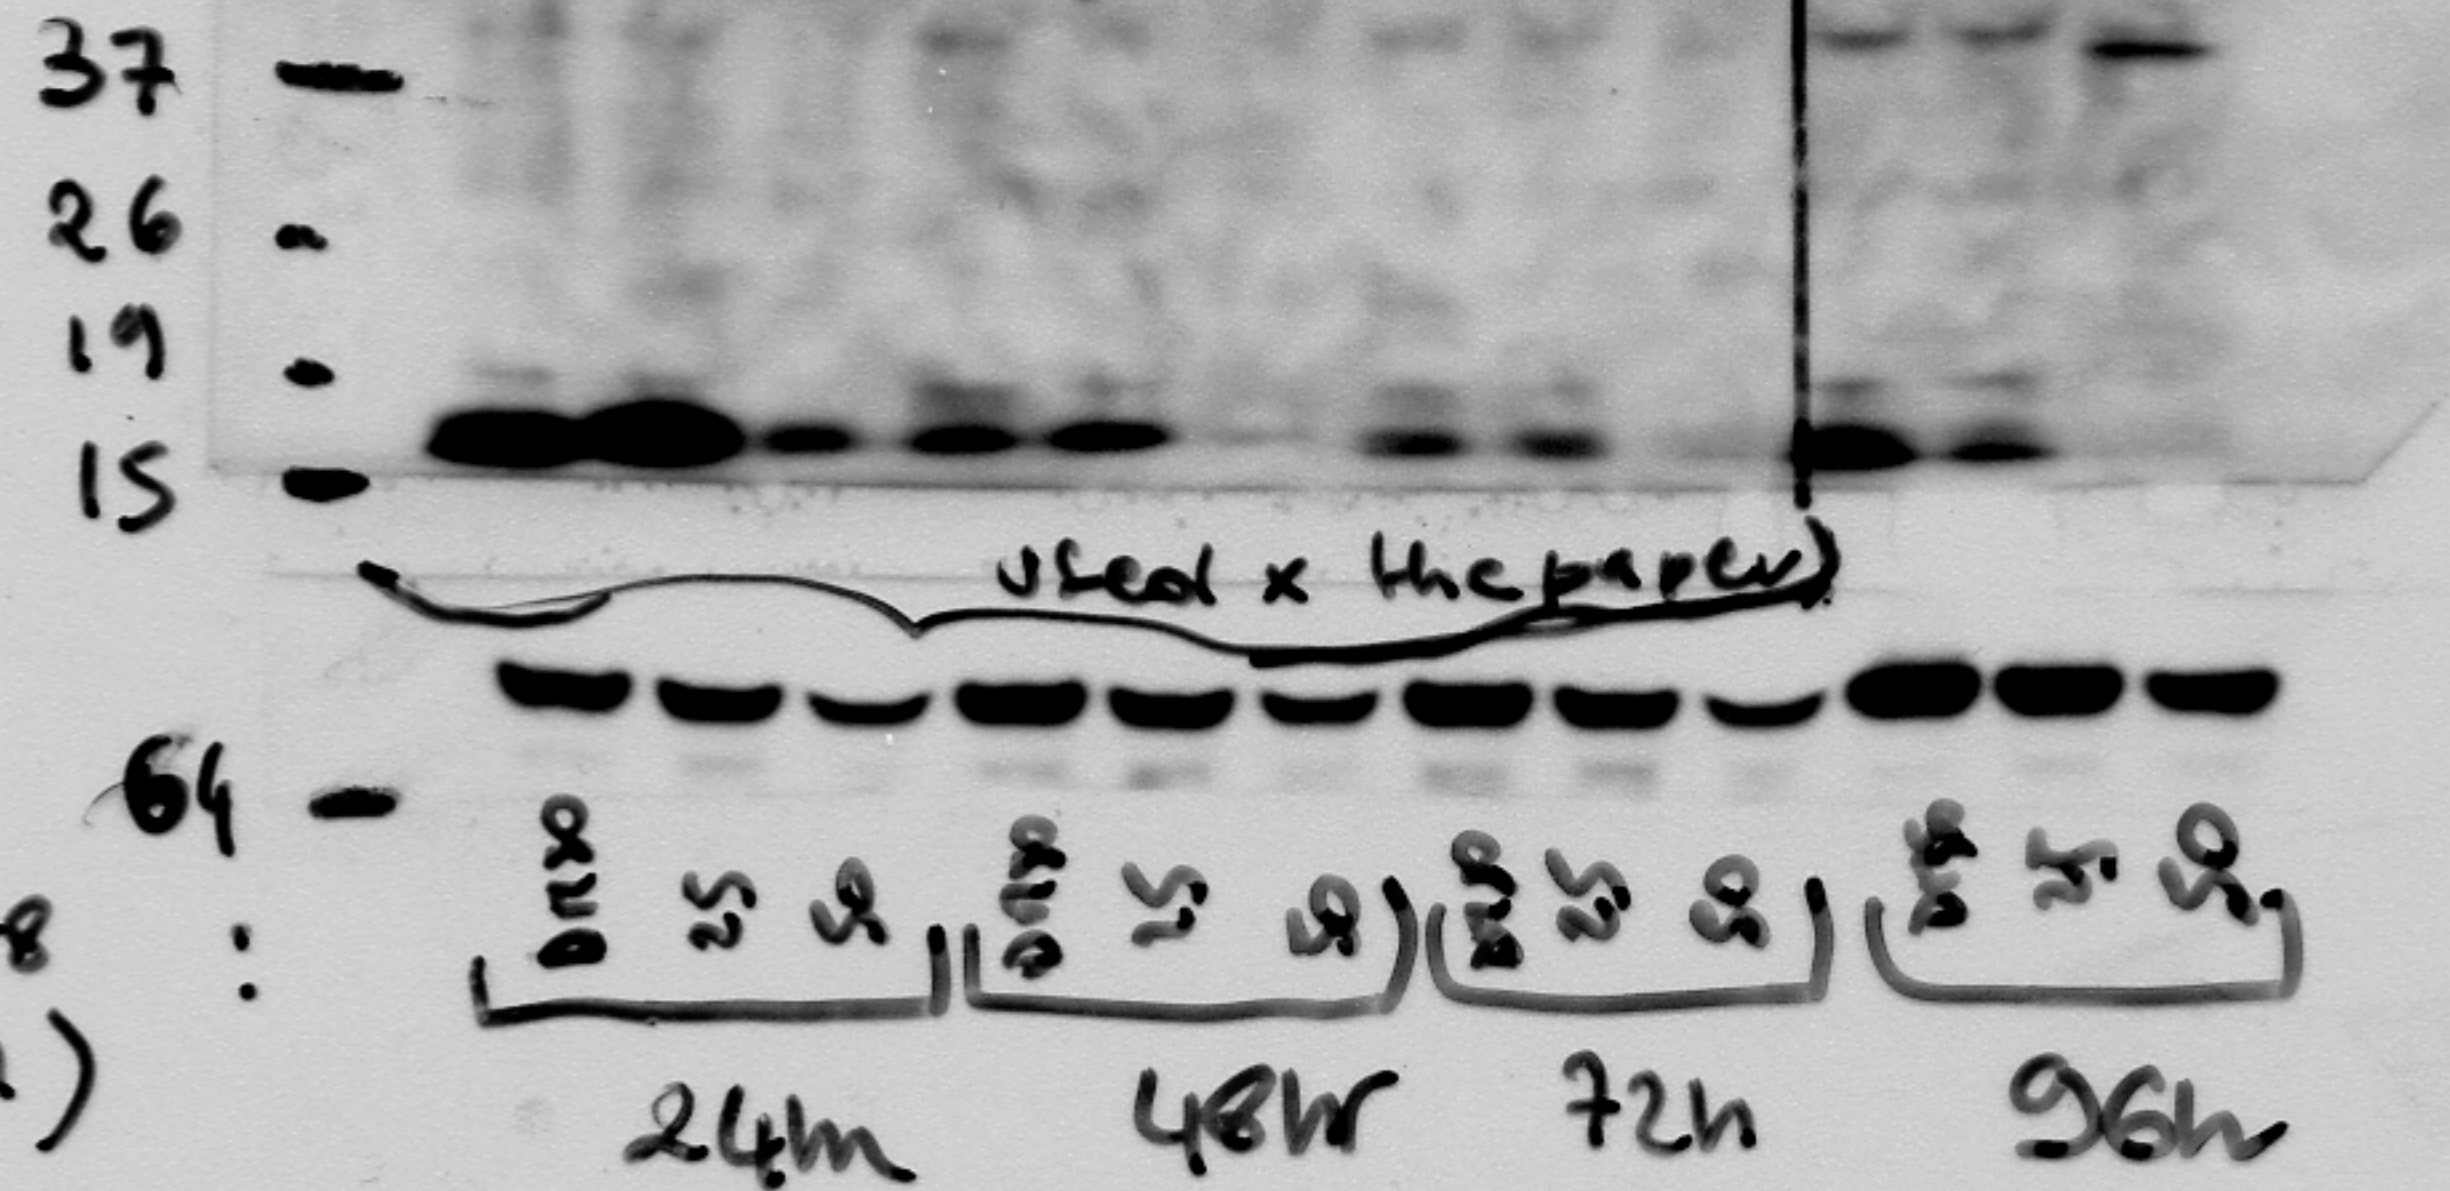 37
26
19
15
used x the paper)
64
DMSO 25 50 DMSO 25 50 DMSO 25 50 DMSO 25 50
8 :
)
24hr 48hr 72h 96hr